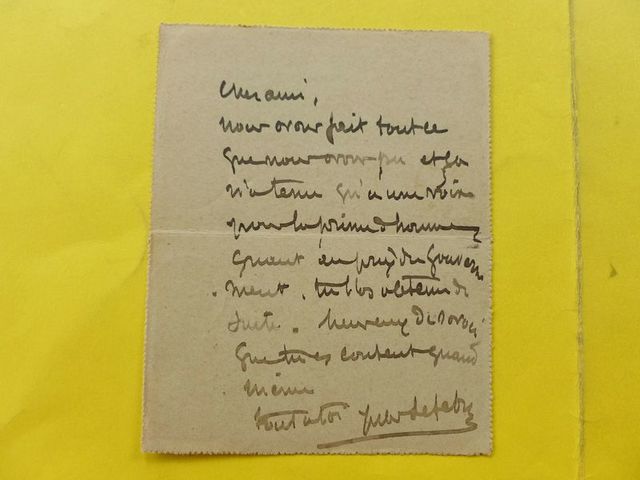 Cher ami,
nous avons fait tout ce
que nous avons pu et ça
n'a tenu qu'à une voix
pour la prime d'honneur
Quant au prix du Gouverne
ment. tu l'as obtenu de
suite. heureux de savoir
que tu es content quand
même
tout à toi Jules Lefebvre